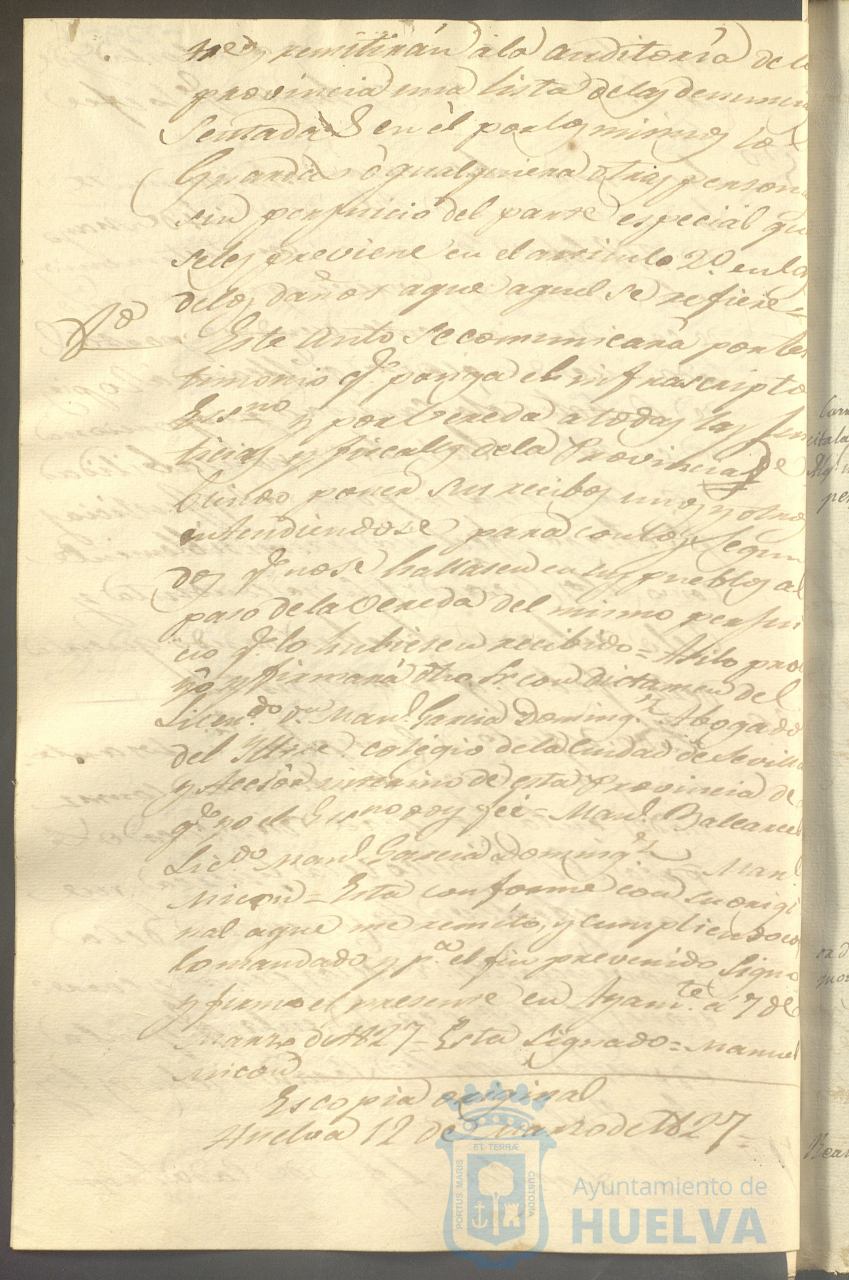 remitirán á la auditoría de la
provincia una lista de las denuncias
sentadas en él por los mismos
Guardas ó qualquiera otras persona
sin perjuicio del parte especiál que
seles previene en el articulo 2º en la
delos daños aque aquel se refiere=
Este Auto se comunicará por tes
timonio qe. ponga el infrascripto
Essno y por Vereda atodas las Jus
ticias y fiscales dela Provincia de
biendo poner sus recibos unos y otros
entendiendose para con los segun
dos qe. nose hallasen en los pueblos al
paso dela Vereda del mismo perjui
cio qe. lo hubiesen recibido= Asilo pro
y firmará dho Sr. con dictamen del
Licendo Dn. Manl. Garcia Domingz. Abogado
del Yltre. colegio dela Ciudad de Sevilla
y Accesór interino de esta Provincia de
qe. yo el Essno doy fee= Manl. Balcarcel
Licdo Manl. Garcia Domingz= Manl
= Esta conforme con su origi
nal aque me remito, y cumpliendo con
lo mandado y pa. el fin prevenido signo
y firmo el presente en Ayamte. á 7 de
Marzo de 1827= Esta signado= Manuel
Es copia original
Huelva 12 de Marzo de 1827=
ET TERRÆ
PORTUS MARIS
CUSTODIA
Ayuntamiento de
HUELVA